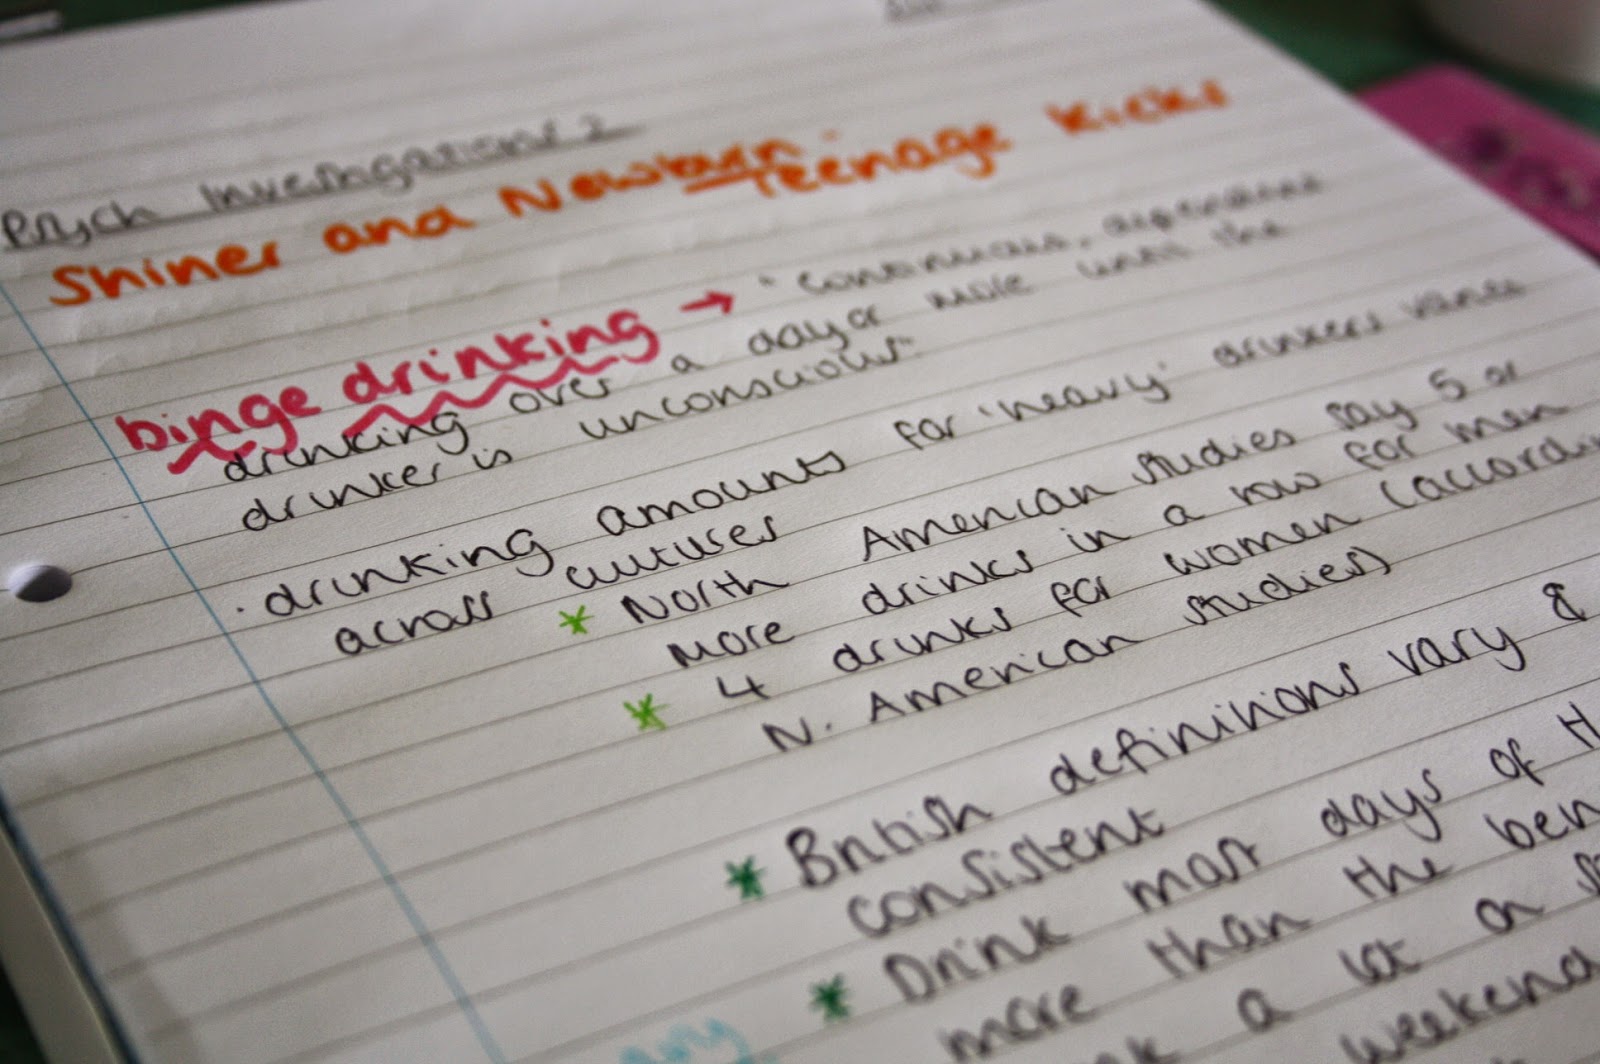 Psych Investigations 2
Shiner and Newburn - Teenage Kicks
binge drinking → "continuous, dependent
drinking over a day or more until the
drinker is unconscious".
· drinking amounts for 'heavy' drinkers varies
across cultures
* North American studies say 5 or
more drinks in a row for men
* 4 drinks for women (accordin
N. American studies)
* British definitions vary &
consistent
* Drink most days of th
more than the ben
a lot on a
weekend